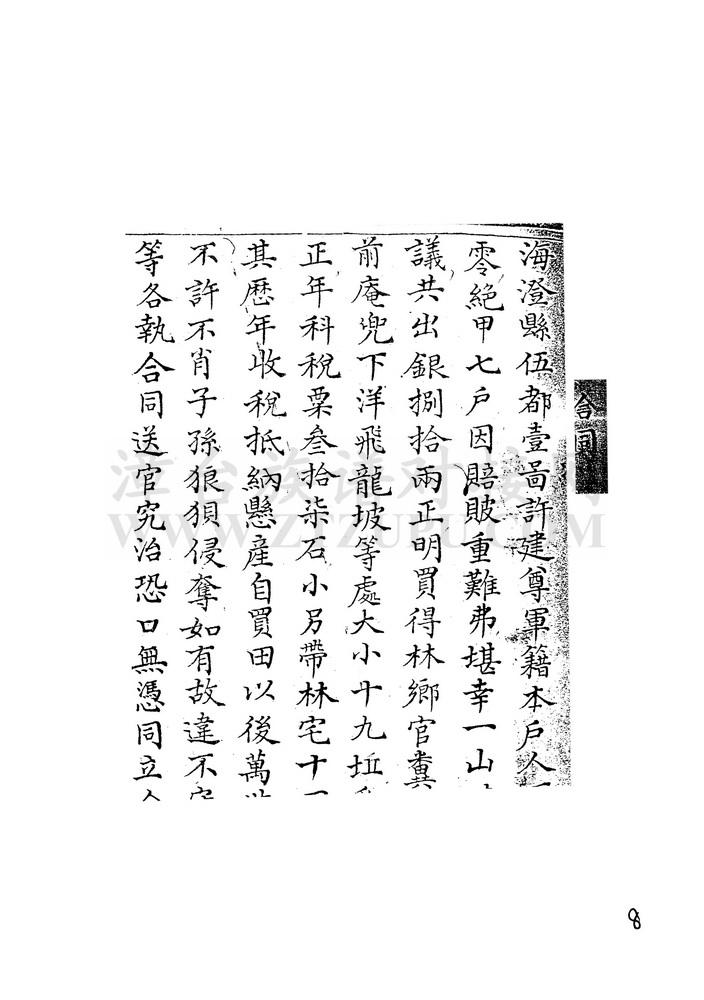 合同
海澄縣伍都壹啚許建尊軍籍本戶人
零絕甲七戶因賠賍重難弗堪幸一山
議共出銀捌拾兩正明買得林鄉官
前庵兜下洋飛龍坡等處大小十九坵
正年科稅粟叁拾柒石小另帶林宅十
其歷年收稅抵納懸産自買田以後萬
不許不肖子孫狼狽侵奪如有故違不
等各執合同送官究治恐口無憑同立
漳台族谱对接网
WWW.ZTZUPU.COM
8